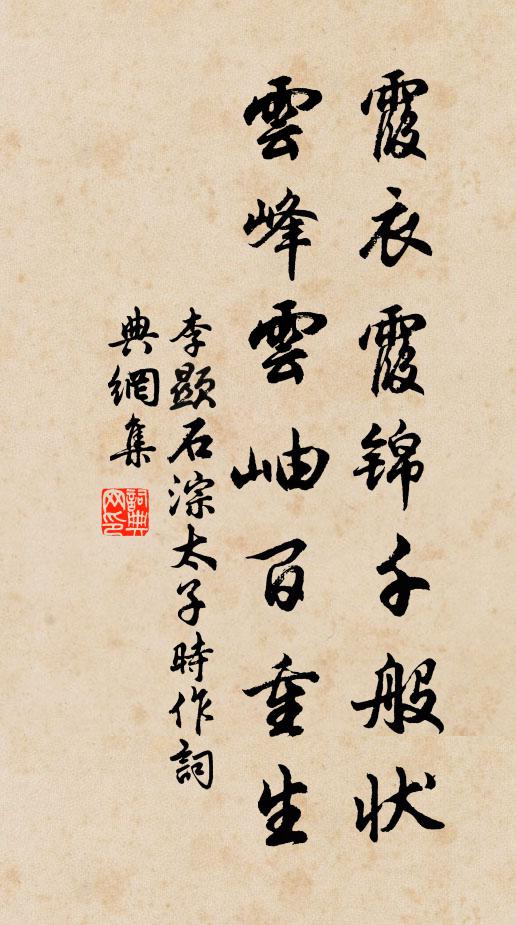 霞衣霞錦千般狀
雲峰雲岫百重生
李顯石淙太子時作詞
典網集
詞典網印